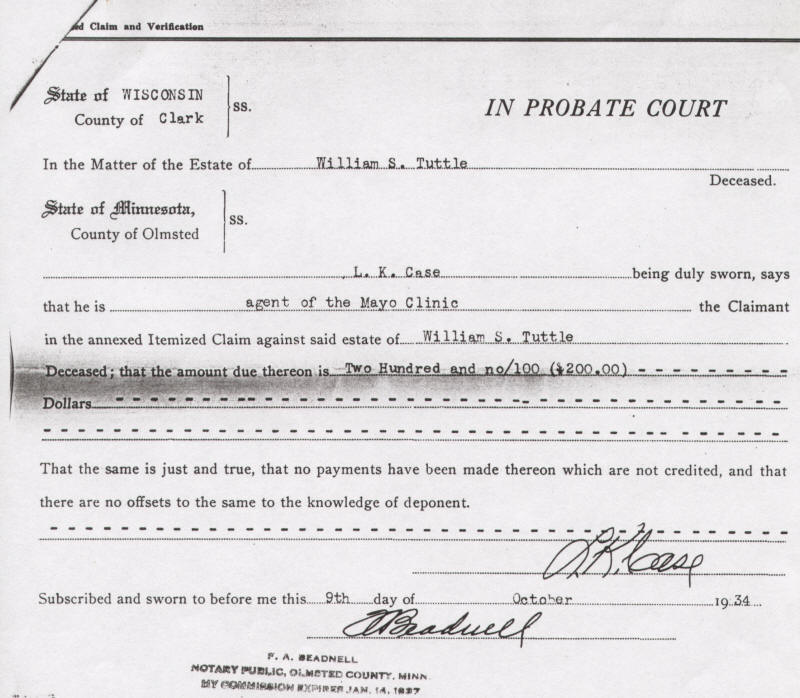 ed Claim and Verification
State of WISCONSIN
County of Clark
ss.
IN PROBATE COURT
In the Matter of the Estate of William S. Tuttle
Deceased.
State of Minnesota,
County of Olmsted
ss.
L. K. Case being duly sworn, says
that he is agent of the Mayo Clinic the Claimant
in the annexed Itemized Claim against said estate of William S. Tuttle
Deceased; that the amount due thereon is Two Hundred and no/100 ($200.00)
Dollars
That the same is just and true, that no payments have been made thereon which are not credited, and that
there are no offsets to the same to the knowledge of deponent.
L.K. Case
Subscribed and sworn to before me this 9th day of October 1934
F A Beadnell
F. A. BEADNELL
NOTARY PUBLIC, OLMSTED COUNTY, MINN.
MY COMMISSION EXPIRES JAN. 14, 1937